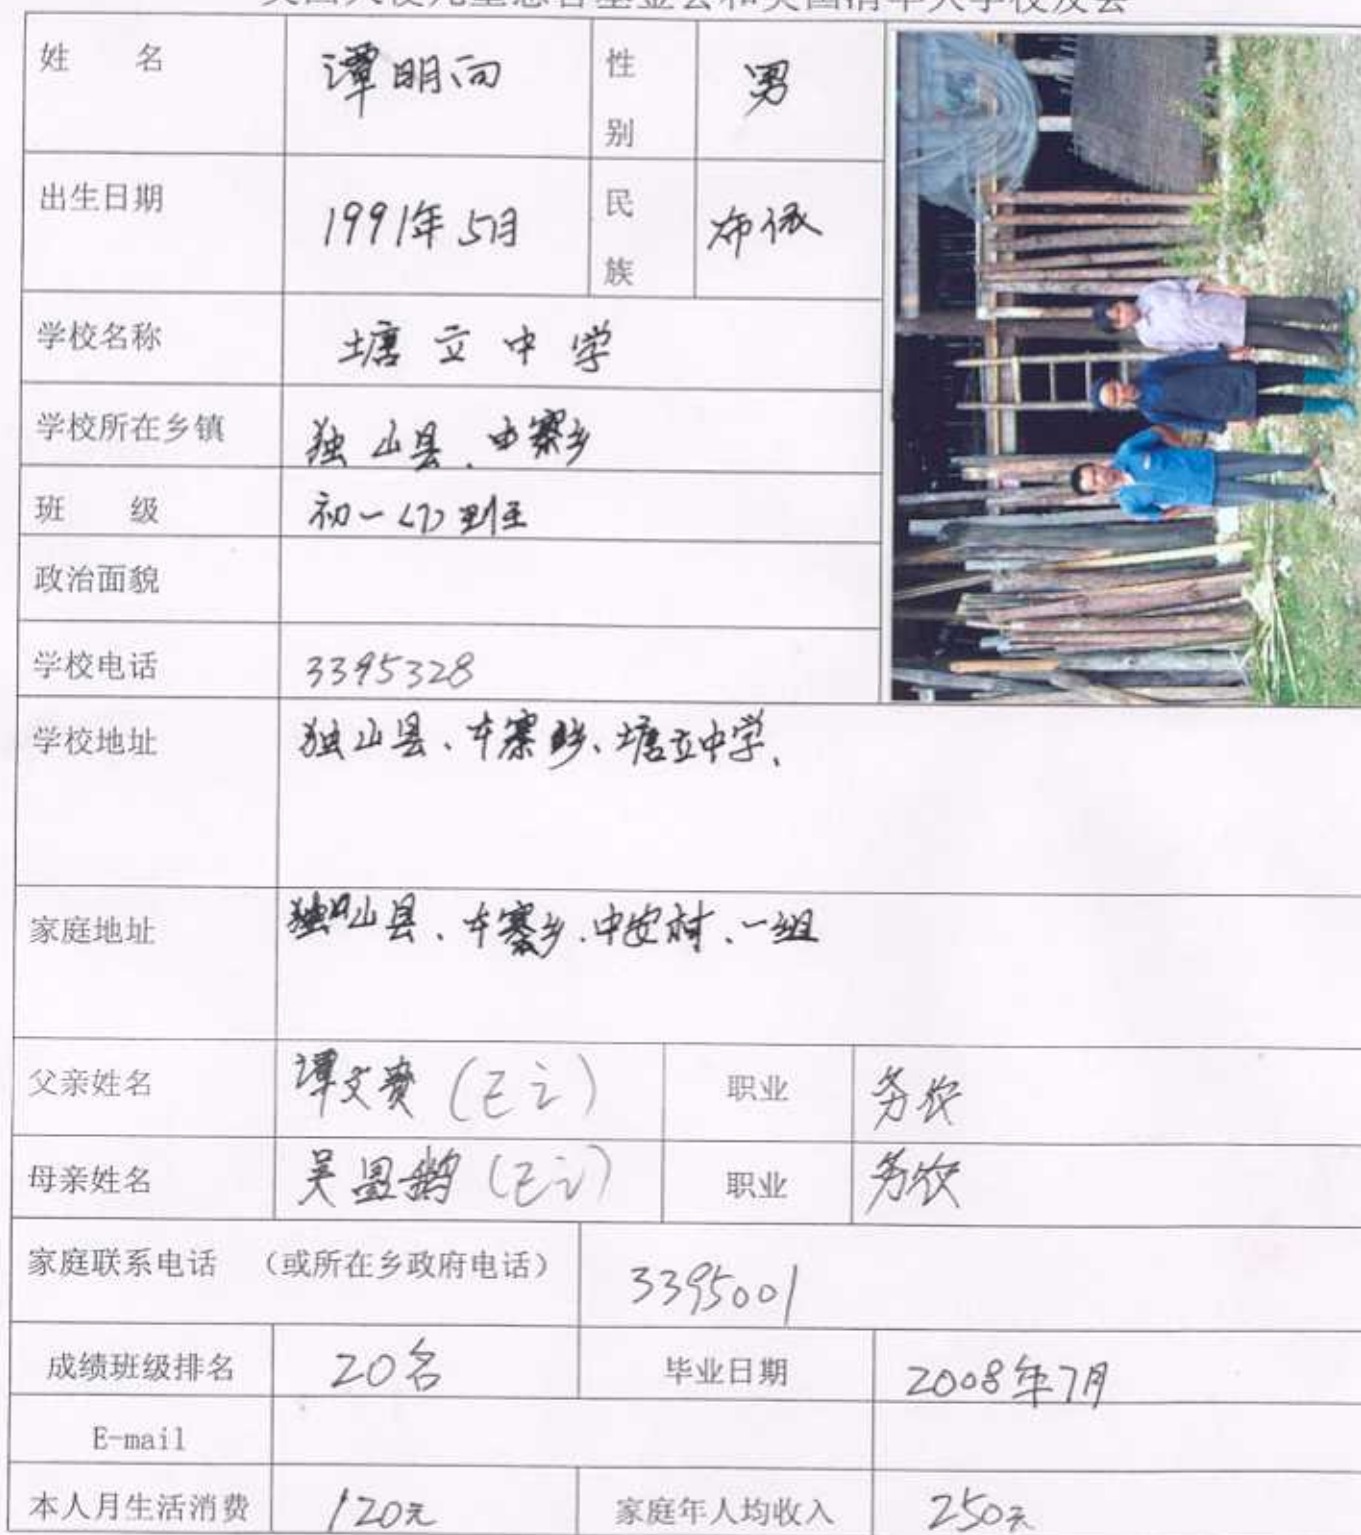 姓 名 谭明向 性别 男
出生日期 1991年5月 民族 布依
学校名称 塘立中学
学校所在乡镇 独山县、本寨乡
班 级 初一(1)班
政治面貌
学校电话 3395328
学校地址 独山县、本寨乡、塘立中学、
家庭地址 独山县、本寨乡、中安村、一组
父亲姓名 谭文贵(亡) 职业 务农
母亲姓名 吴 职业 务农
家庭联系电话 (或所在乡政府电话) 3395001
成绩班级排名 20名 毕业日期 2008年7月
E-mail
本人月生活消费 120元 家庭年人均收入 250元